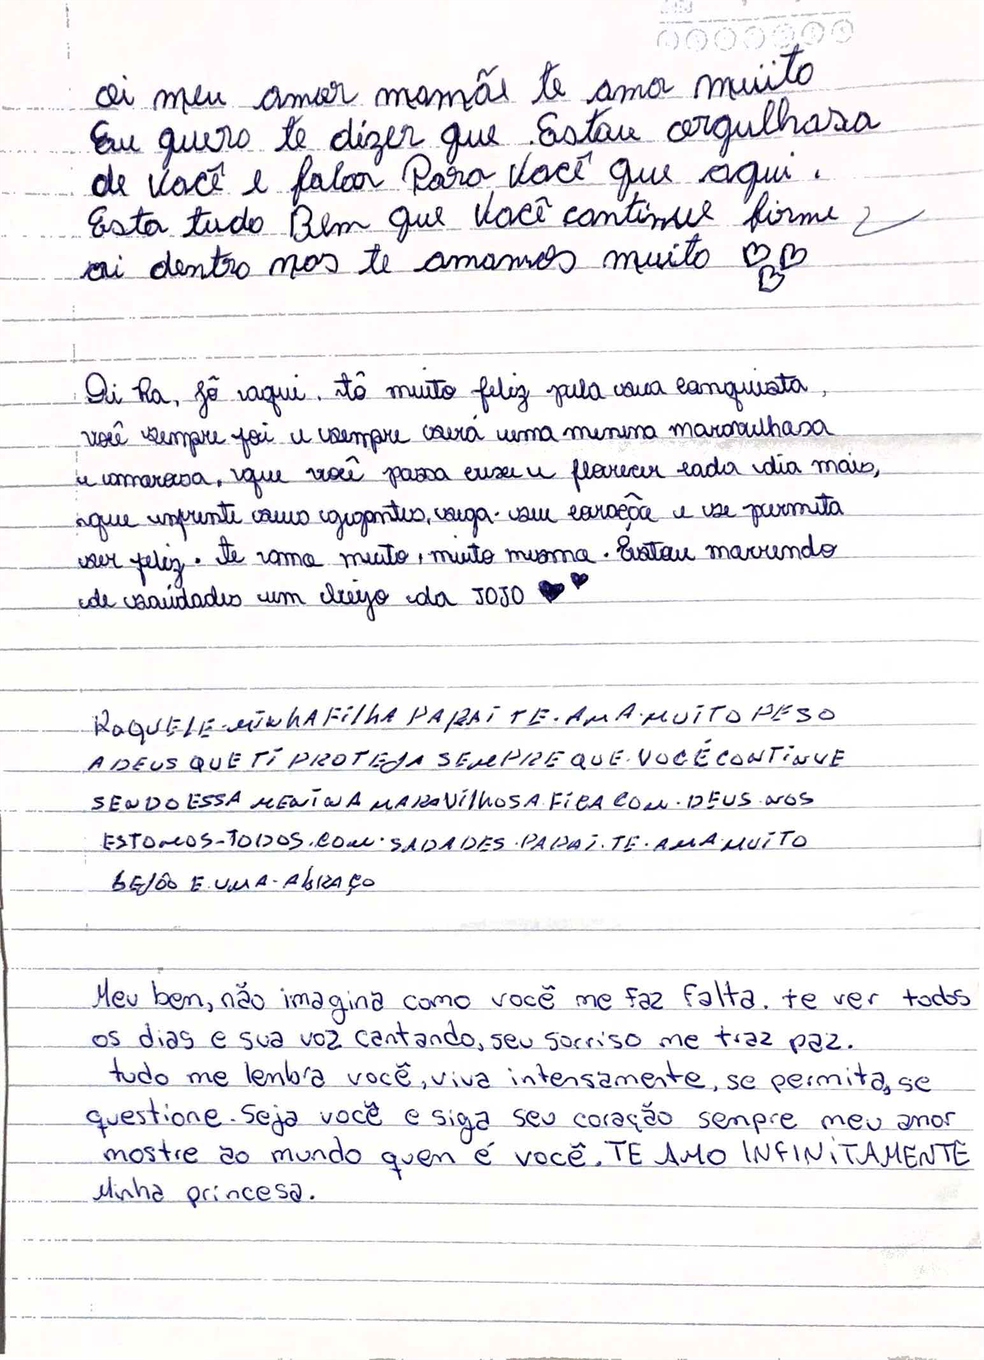 oi meu amor mamãe te ama muito
Eu quero te dizer que Estou orgulhosa
de você e falar Para você que aqui.
Esta tudo Bem que você continue firme
ai dentro nos te amamos muito
Oi Ra, Jô aqui. tô muito feliz pela sua conquista,
você sempre foi e sempre será uma menina maravilhosa
e amorosa, que você possa cresce e florecer cada dia mais,
que enfrente seus gigantes, siga seu coração e se permita
ser feliz. te amo muito, muito mesmo. Estou morrendo
de saudades um beijo da JOJO
RAQUELE MINHA FILHA PAPAI TE AMA MUITO PESO
A DEUS QUE TI PROTEJA SEMPRE QUE VOCÉ CONTINUE
SENDO ESSA MENINA MARAVILHOSA FICA COM DEUS NOS
ESTOMOS TODOS COM SADADES PAPAI TE AMA MUITO
BEJOS E UMA ABRAÇO
Meu ben, não imagina como você me faz falta. te ver todos
os dias e sua voz cantando, seu sorriso me traz paz.
tudo me lenbra você, viva intensamente, se permita, se
questione. Seja você e siga seu coração sempre meu amor
mostre ao mundo quen é você. TE AMO INFINITAMENTE
Minha princesa.